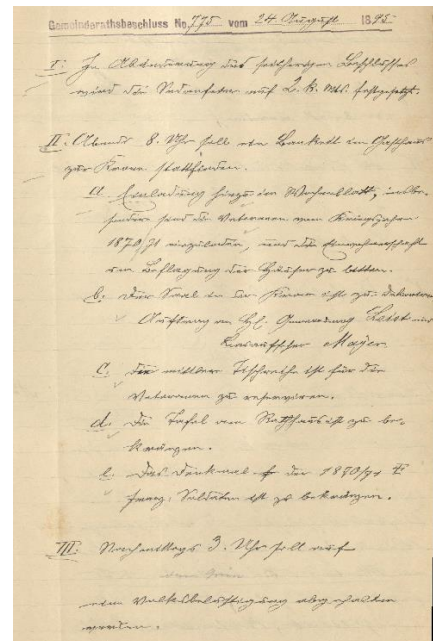 Gemeinderathsbeschluss No. 775 vom 24 August 1895.
I: In Abänderung des seitherigen Beschlusses
wird die Sedanfeier auf 2. k. Mts. festgesetzt.
II: Abends 8. Uhr soll ein Bankett im Gasthaus
zur Krone stattfinden.
a. Einladung hiezu im Wochenblatt, insbe-
sondere sind die Veteranen vom Kriegsjahre
1870/71 einzuladen, und die Einwohnerschaft
um Beflagung der Häuser zu bitten.
b. Der Saal in der Krone ist zu dekoriren
Auftrag an Leist und
Mayer
c. Die mittlere Tischreihe ist für die
Veteranen zu reserviren.
d. Die Tafel am Rathhaus ist zu be-
kränzen.
e. Das Denkmal der 1870/71
franz. Soldaten ist zu bekränzen.
III: Nachmittags 3. Uhr soll auf
eine Volksbelustigung abgehalten
werden.